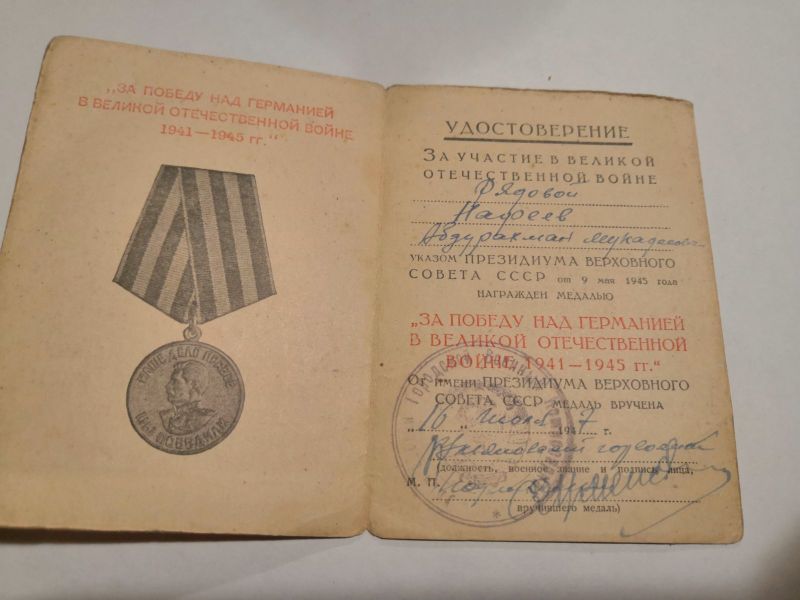 „ЗА ПОБЕДУ НАД ГЕРМАНИЕЙ
В ВЕЛИКОЙ ОТЕЧЕСТВЕННОЙ ВОЙНЕ
1941—1945 гг."
НАШЕ ДЕЛО ПРАВОЕ
МЫ ПОБЕДИЛИ
УДОСТОВЕРЕНИЕ
ЗА УЧАСТИЕ В ВЕЛИКОЙ
ОТЕЧЕСТВЕННОЙ ВОЙНЕ
Рядовой
Нафеев
Абдурахман
УКАЗОМ ПРЕЗИДИУМА ВЕРХОВНОГО
СОВЕТА СССР от 9 мая 1945 года
НАГРАЖДЕН МЕДАЛЬЮ
„ЗА ПОБЕДУ НАД ГЕРМАНИЕЙ
В ВЕЛИКОЙ ОТЕЧЕСТВЕННОЙ
ВОЙНЕ 1941—1945 гг."
ОТ ИМЕНИ ПРЕЗИДИУМА ВЕРХОВНОГО
СОВЕТА СССР МЕДАЛЬ ВРУЧЕНА
„16" июля 1947 г.
Ульяновский городской
(должность, военное звание и подпись лица,
М. П.
вручившего медаль)